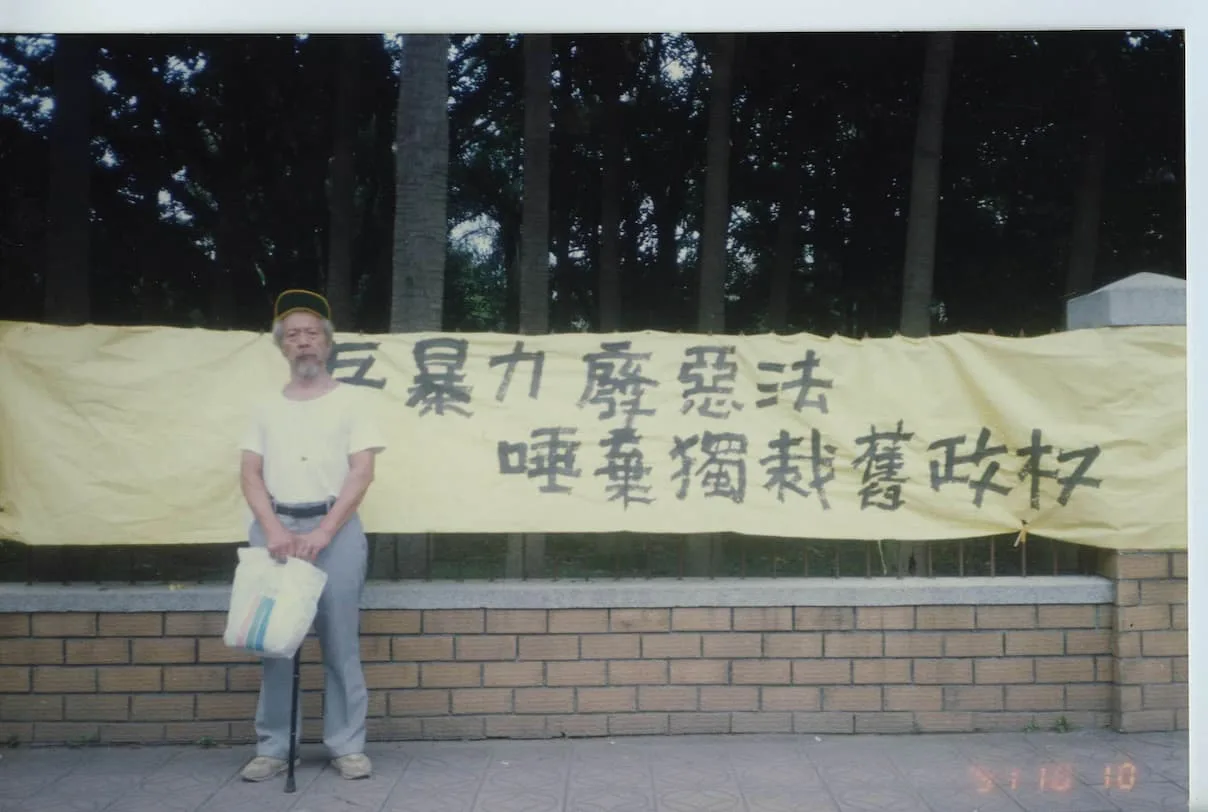 反暴力廢惡法
唾棄獨裁舊政权
91 10 10